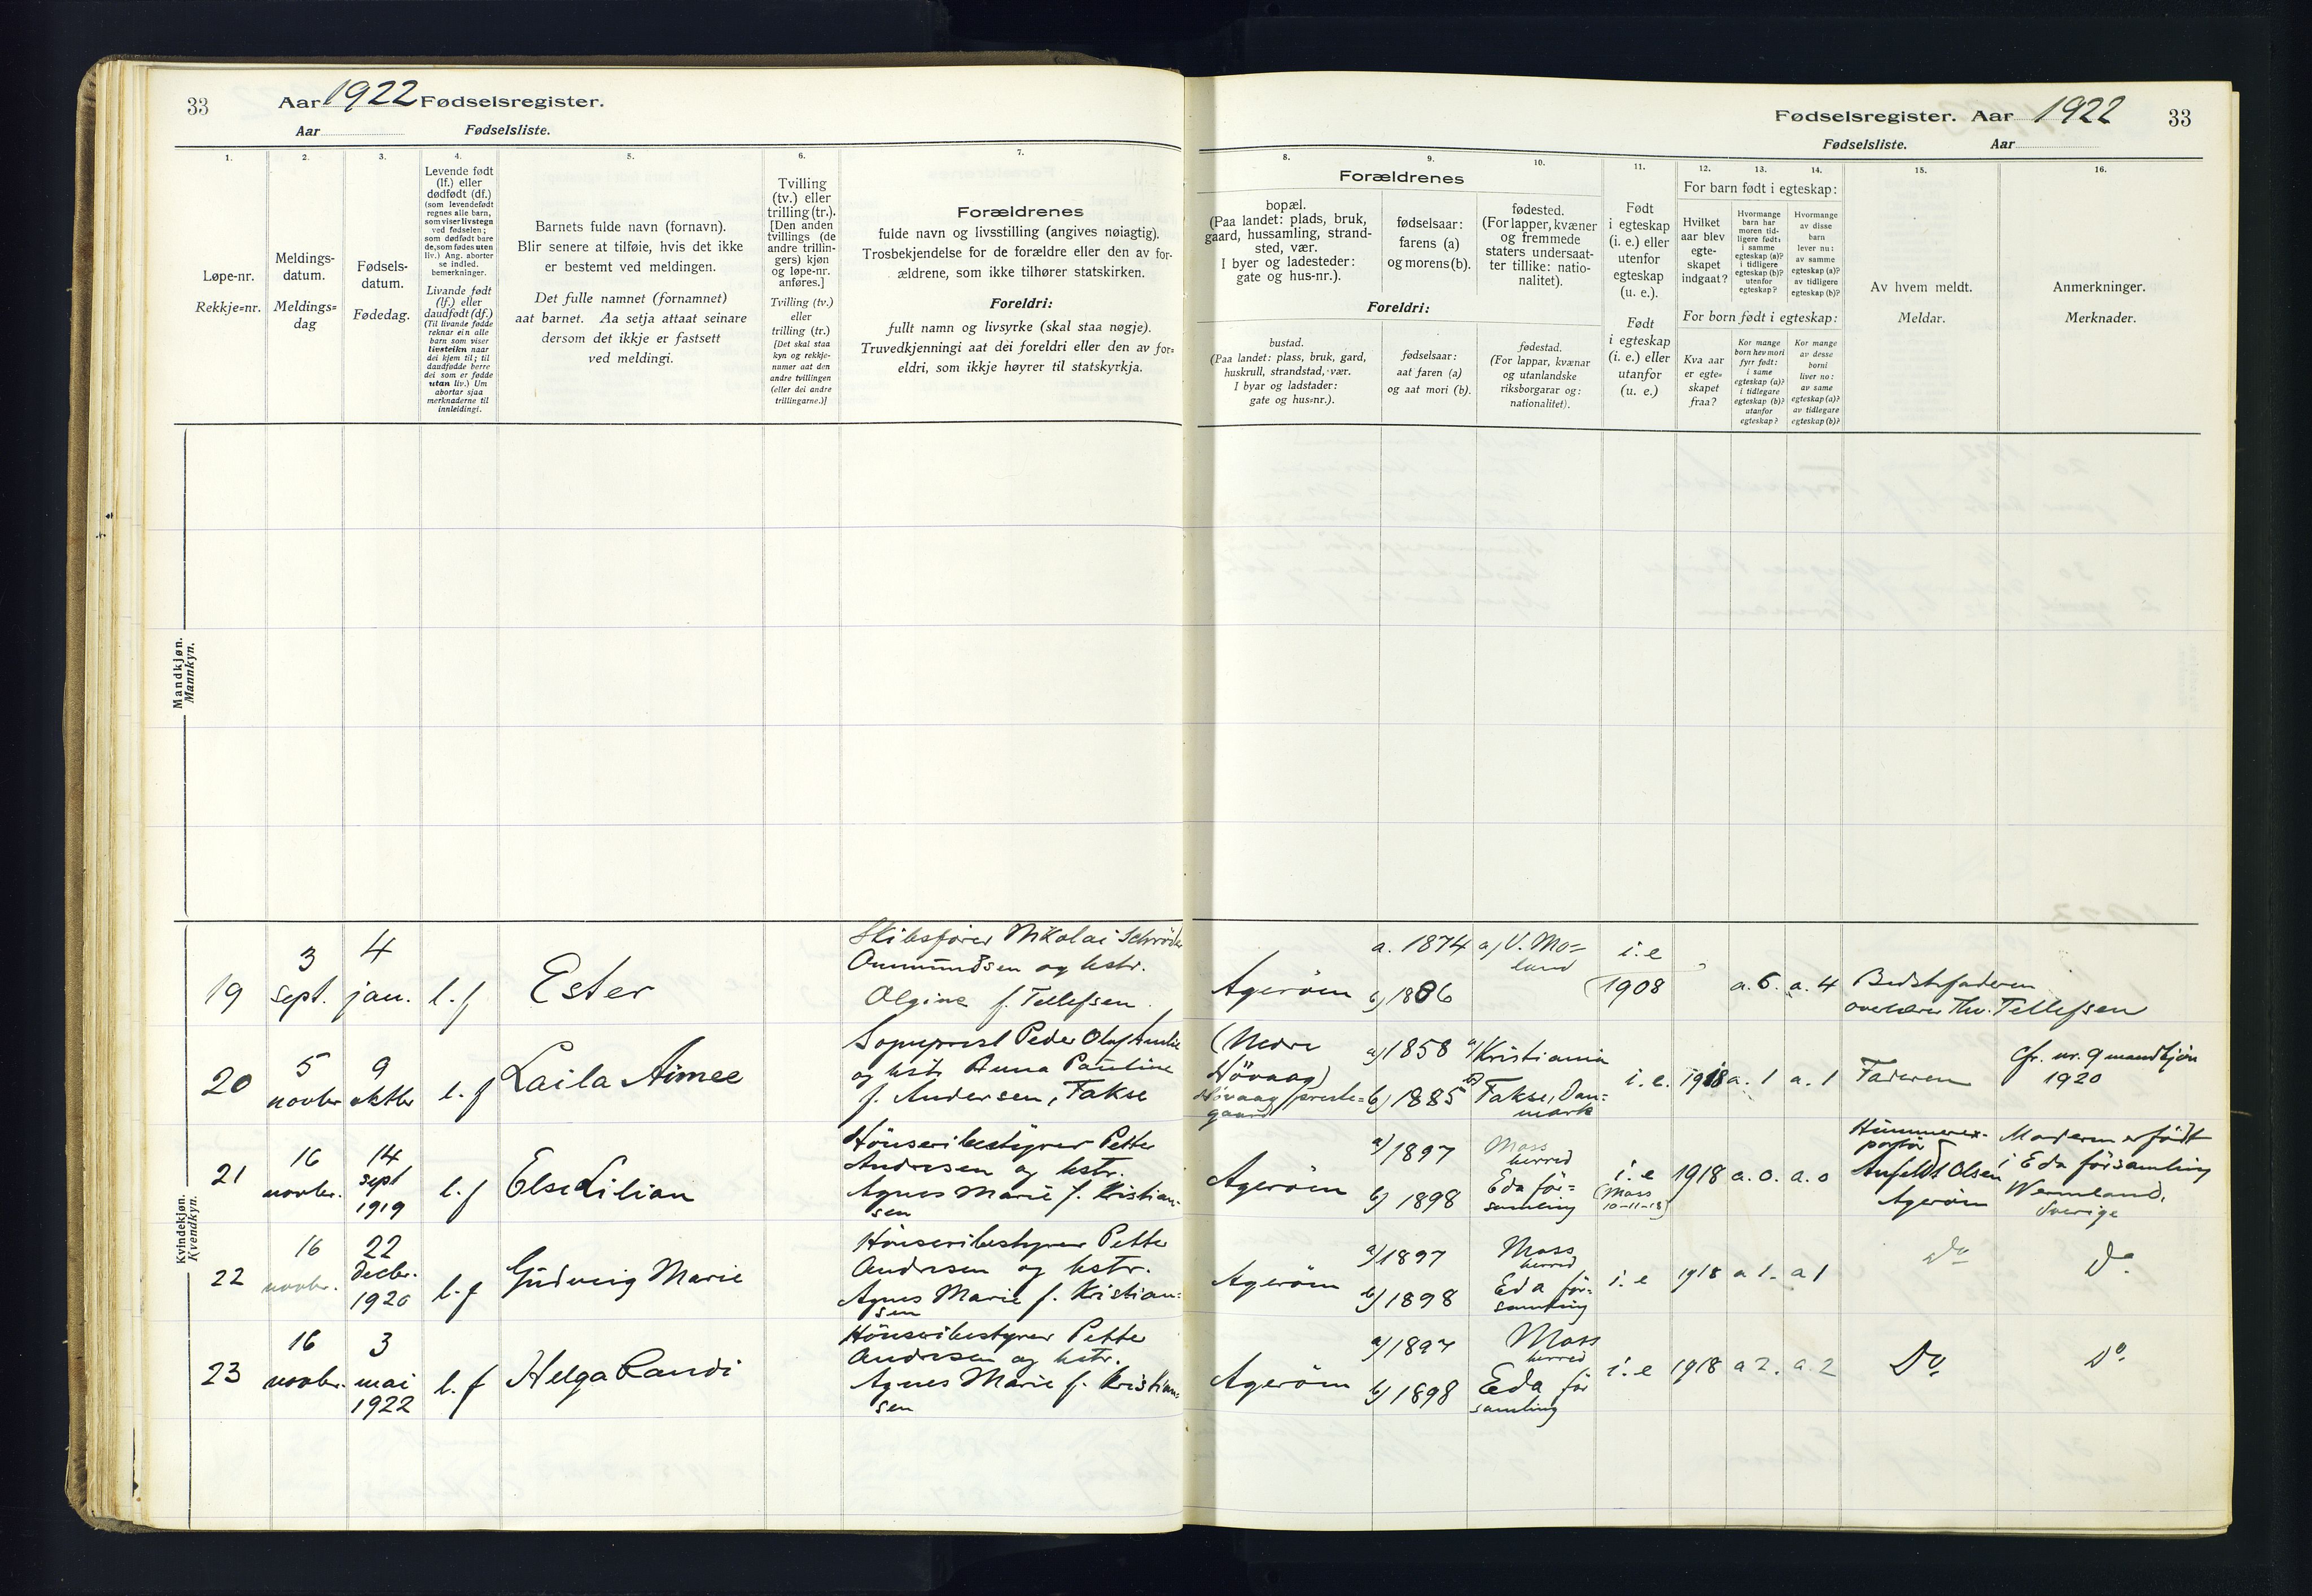 33
Aar 1922 Fødselsregister.
Aar Fødselsliste.
1.
2.
3.
4.
5.
6.
7.
Løpe-nr.
Rekkje=nr.
Meldings-
datum.
Meldings=
dag
Fødsels-
datum.
Fødedag.
Levende født
(lf.) eller
dødfødt (df.)
(som levendefødt
regnes alle barn,
som viser livstegn
ved fødselen;
som dødfødt bare
de, som fødes uten
liv.) Ang. aborter
se indled.
bemerkninger.
Livande født
(lf.) eller
daudfødt (df.)
(Til livande fødde
reknar ein alle
barn som viser
livsteikn naar
dei kjem til; til
daudfødde berre
dei som er fødde
utan liv.) Um
abortar sjaa
merknaderne til
innleidingi.
Barnets fulde navn (fornavn).
Blir senere at tilføie, hvis det ikke
er bestemt ved meldingen.
Det fulle namnet (fornamnet)
aat barnet. Aa setja attaat seinare
dersom det ikkje er fastsett
ved meldingi.
Tvilling
(tv.) eller
trilling (tr.).
[Den anden
tvillings (de
andre trillin-
gers) kjøn
og løpe-nr.
anføres.]
Tvilling (tv.)
eller
trilling (tr.)
[Det skal staa
kyn og rekkje-
numer aat den
andre tvillingen
(eller dei andre
trillingarne.)]
Forældrenes
fulde navn og livsstilling (angives nøiagtig).
Trosbekjendelse for de forældre eller den av for-
ældrene, som ikke tilhører statskirken.
Foreldri:
fullt namn og livsyrke (skal staa nøgje).
Truvedkjenningi aat dei foreldri eller den av for=
eldri, som ikkje høyrer til statskyrkja.
Mandkjøn.
Mannkyn.
Kvindekjøn.
Kvendkyn.
19
3
sept.
4
jan.
l.f
Ester
Skibsfører Nikolai Schrøder
Ommundsen og hstr.
Olgine f. Tellefsen.
20
5
novbr
9
oktbr
l.f
Laila Aimee
Sogneprest Peder Olaf
og hstr Anna Pauline
f. Andersen, Fakse
21
16
novbr.
14
sept
1919
l.f
Else Lilian
Hönseribestyrer Petter
Andresen og hstr.
Agnes Marie f. Kristian-
sen
22
16
novbr.
22
decbr.
1920
l.f
Gudveig Marie
Hönseribestyrer Petter
Andresen og hstr.
Agnes Marie f. Kristian=
sen
23
16
novbr.
3
mai
1922
l.f
Helga Randi
Hönseribestyrer Petter
Andresen og hstr.
Agnes Marie f. Kristian=
sen
Fødselsregister. Aar 1922 33
Fødselsliste. Aar
8.
9.
10.
11.
12.
13.
14.
15.
16.
Forældrenes
bopæl.
(Paa landet: plads, bruk,
gaard, hussamling, strand-
sted, vær.
I byer og ladesteder:
gate og hus-nr.).
fødselsaar:
farens (a)
og morens (b).
fødested.
(For lapper, kvæner
og fremmede
staters undersaat-
ter tillike: natio-
nalitet).
Foreldri:
bustad.
(Paa landet: plass, bruk, gard,
huskrull, strandstad, vær.
I byar og ladstader:
gate og hus=nr.).
fødselsaar:
aat faren (a)
og aat mori (b).
fødestad.
(For lappar, kvænar
og utanlandske
riksborgarar og:
nationalitet).
Født
i egteskap
(i. e.) eller
utenfor
egteskap
(u. e.).
Født
i egteskap
(i. e.) eller
utanfor
(u. e.)
For barn født i egteskap:
Hvilket
aar blev
egte-
skapet
indgaat?
Hvormange
barn har
moren tid-
ligere født:
i samme
egteskap (a)?
i tidligere
egteskap (b)?
utenfor
egteskap?
Hvormange
av disse
barn
lever nu:
av samme
egteskap (a)?
av tidligere
egteskap (b)?
For born født i egteskap:
Kva aar
er egte=
skapet
fraa?
Kor mange
born hev mori
fyrr født:
i same
egteskap (a)?
i tidlegare
egteskap (b)?
utanfor
egteskap?
Kor mange
av desse
borni
liver no:
av same
egteskap (a)?
av tidlegare
egteskap (b)?
Av hvem meldt.
Meldar.
Anmerkninger.
Merknader.
Ageröen
a. 1874
b) 1886
a) V. Mo=
land
i.e
(1908
a. 6.
a. 4
Bedstefaderen
overlærer Th. Tellefsen
(Nedre
Hövaag)
Hövaag preste=
gaard
a) 1858
b) 1885
a) Kristiania
b) Fakse, Dan=
mark
i. e.
1918
a. 1
a. 1
Faderen
Cfr. nr. 9 mandkjön
1920
Ageröen
a) 1897
b) 1898
Moss
herred
Eda för=
samling
i. e
(Moss
10-11-18)
1918
a. 0.
a. 0
Hummerex-
portør
Anfeldt Olsen
Ageröen
Moderen er født
i Eda församling
Wermland,
Sverige
Ageröen
a) 1897
b) 1898
Moss
herred
Eda för=
samling
i. e
1918
a 1.
a 1
Do
Do.
Ageröen
a) 1897
b) 1898
Moss
herred
Eda för
samling
i. e
1918
a 2.
a. 2
Do.
Do.